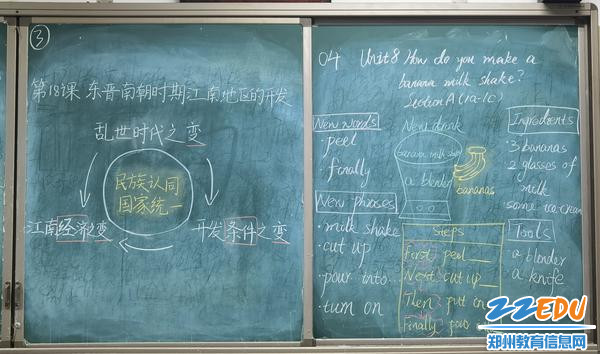 ③
第18课 东晋南朝时期江南地区的开发
乱世时代之变
民族认同
国家统一
江南经济之变
开发条件之变
04 Unit 8 How do you make a
banana milk shake?
Section A (1a-1c)
New words
peel
finally
New phrases
milk shake
cut up
pour into...
turn on
New drink
banana milk shake
a blender
bananas
Steps
First peel
Next cut up
Then put in
Finally pour
Ingredients
3 bananas
2 glasses of
milk
some ice-cream
Tools
a blender
a knife
ZZEDU
郑州教育信息网